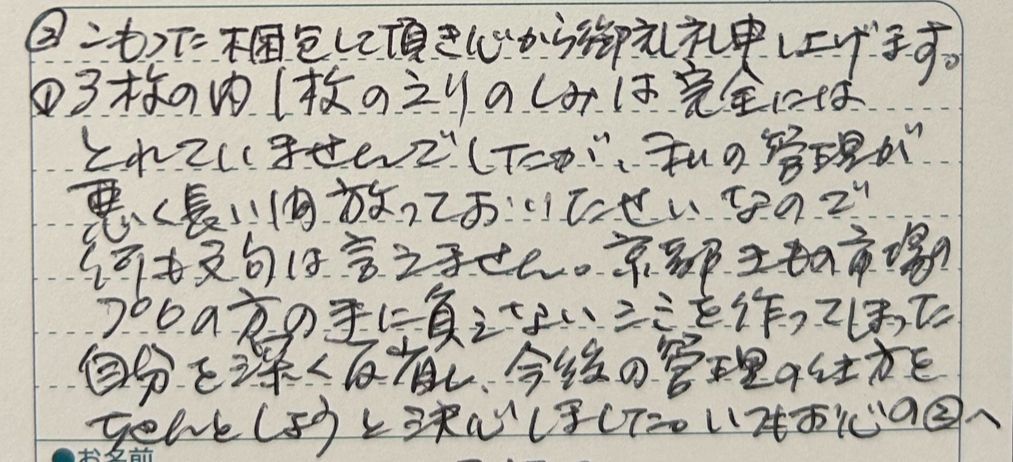 ②こもった梱包して頂き心から御礼申し上げます。
①3枚の内1枚のえりのしみは完全には
とれていませんでしたが、私の管理が
悪く長い間放っておいたせいなので
何も文句は言えません。京都きもの市場の
プロの方の手に負えないシミを作ってしまった
自分を深く反省し、今後の管理の仕方を
ちゃんとしようと決心しました。いつもお心の②へ
●お名前